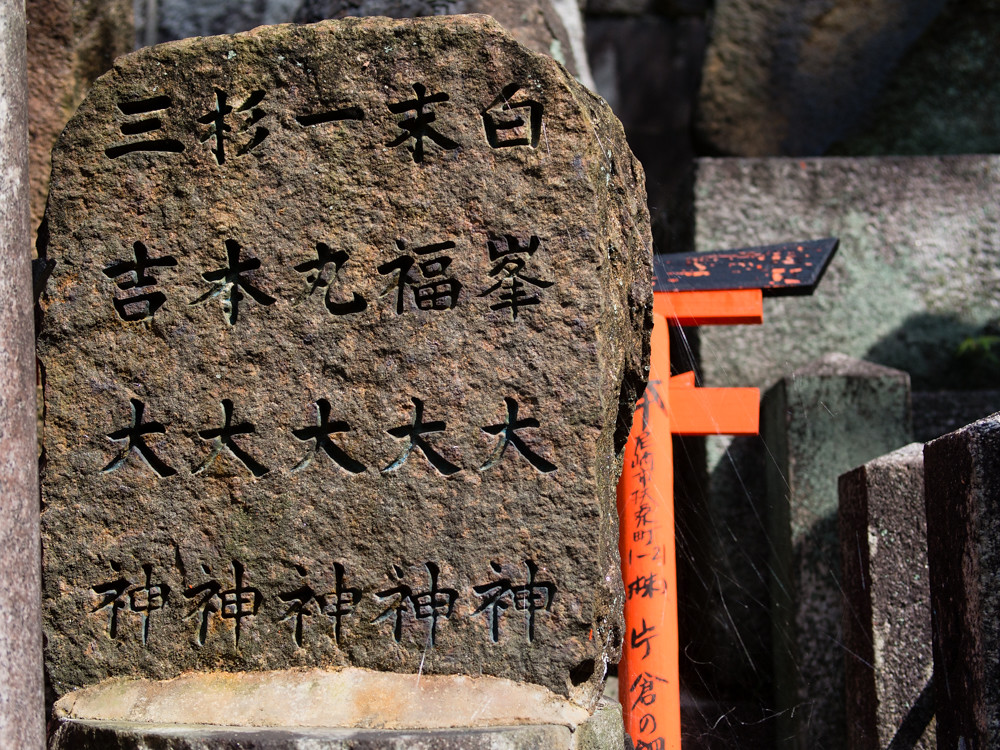 白峯大神
末福大神
一丸大神
杉本大神
三吉大神
尼崎市 町1-21(株)片倉の